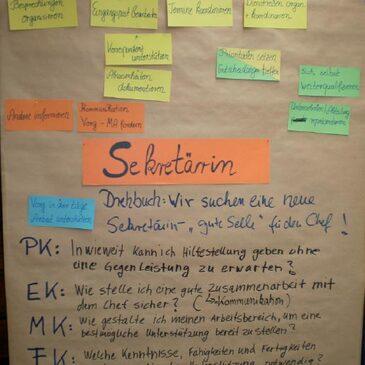 Besprechungen
organisieren
Eingangspost bearbeiten
Termine koordinieren
Dienstreisen organ.
+ koordinieren
Vorgesetzten
unterstützen
Akten
dokumentieren
Prioritäten setzen
Entscheidungen treffen
Sich selbst
weiterqualifizieren
Andere informieren
Kommunikation
Vorg - MA fördern
Unternehmen/Abteilung
repräsentieren
Sekretärin
Vorg. in der tägl.
Arbeit unterstützen
Drehbuch: Wir suchen eine neue
Sekretärin - "gute Selle" für den Chef!
PK: Inwieweit kann ich Hilfestellung geben ohne
eine Gegenleistung zu erwarten?
EK: Wie stelle ich eine gute Zusammenarbeit mit
dem Chef sicher? (↳Kommunikation)
MK: Wie gestalte ich meinen Arbeitsbereich, um eine
bestmögliche Unterstützung bereit zu stellen?
FK: Welche Kenntnisse, Fähigkeiten und Fertigkeiten
notwendig?